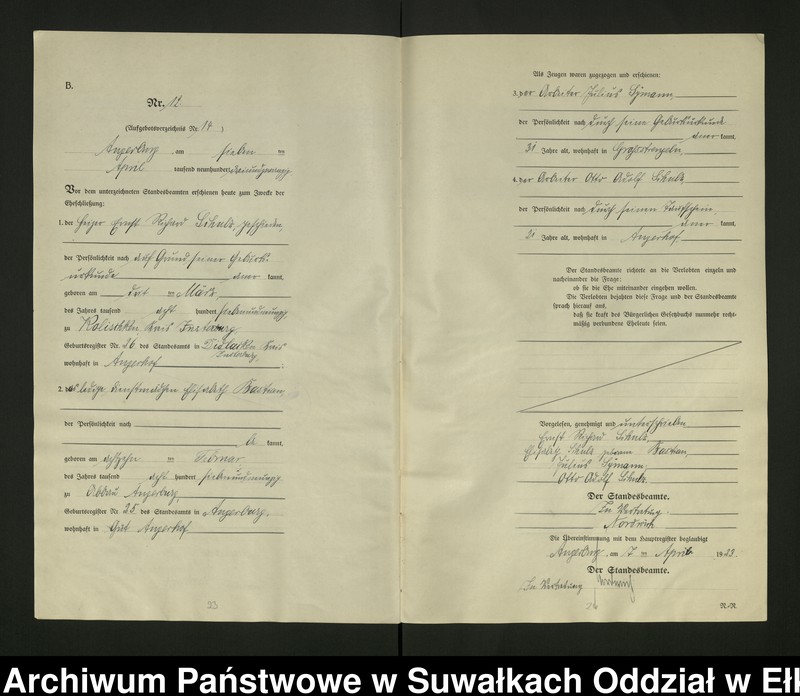 B.
Nr. 12
(Aufgebotsverzeichnis Nr. 14)
Angerburg am sieben ten
April tausend neunhundert dreiundzwanzig
Vor dem unterzeichneten Standesbeamten erschienen heute zum Zwecke der
Eheschließung:
1. der Heizer Ernst Richard Schulz, geschieden,
der Persönlichkeit nach auf Grund seiner Geburts-
urkunde kannt,
geboren am ten März
des Jahres tausend acht hundert siebenundneunzig
zu Kalischken Kreis Insterburg
Geburtsregister Nr. 26 des Standesamts in Kreis
Insterburg
wohnhaft in Angerhof ;
2. die ledige Dienstmädchen Elisabeth Bastian,
der Persönlichkeit nach
kannt,
geboren am achtzehn ten Februar
des Jahres tausend acht hundert siebenundneunzig
zu Abbau Angerburg,
Geburtsregister Nr. 25 des Standesamts in Angerburg,
wohnhaft in Gut Angerhof
23
Als Zeugen waren zugezogen und erschienen:
3. der Arbeiter Julius Symann
der Persönlichkeit nach durch seine Geburtsurkunde
kannt,
31 Jahre alt, wohnhaft in
4. der Arbeiter Otto Adolf Schulz
der Persönlichkeit nach durch seinen Taufschein
kannt,
21 Jahre alt, wohnhaft in Angerhof
Der Standesbeamte richtete an die Verlobten einzeln und
nacheinander die Frage:
ob sie die Ehe miteinander eingehen wollen.
Die Verlobten bejahten diese Frage und der Standesbeamte
sprach hierauf aus,
daß sie kraft des Bürgerlichen Gesetzbuchs nunmehr recht-
mäßig verbundene Eheleute seien.
Vorgelesen, genehmigt und unterschrieben
Ernst Richard Schulz
Elisabeth Schulz geborene Bastian
Julius Symann
Otto Adolf Schulz
Der Standesbeamte.
In Vertretung
Die Übereinstimmung mit dem Hauptregister beglaubigt
Angerburg, am 7 ten April 1923.
Der Standesbeamte.
In Vertretung
N.-R.
Archiwum Państwowe w Suwałkach Oddział w Eł